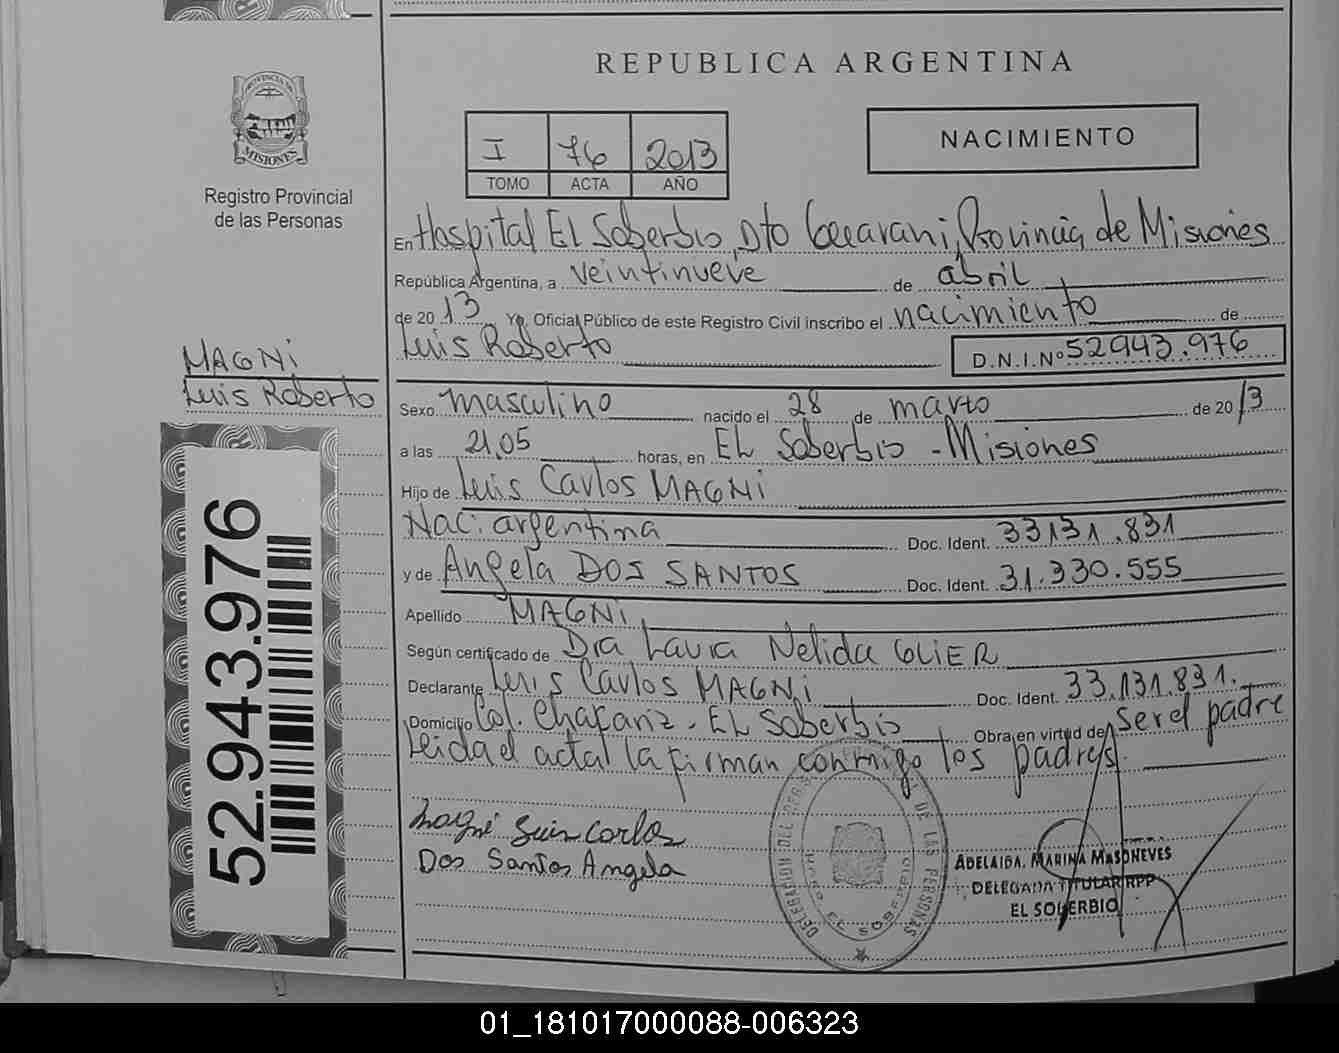 REPUBLICA ARGENTINA
PROVINCIA DE
MISIONES
Registro Provincial
de las Personas
I 76 2013
TOMO ACTA AÑO
NACIMIENTO
En Hospital El Soberbio, Dto Guarani, Provincia de Misiones
República Argentina, a veintinueve de abril
de 2013 Yo, Oficial Público de este Registro Civil inscribo el nacimiento de
Luis Roberto D.N.I.Nº 52943.976
MAGNi
Luis Roberto
Sexo masculino nacido el 28 de marzo de 2013
a las 21,05 horas, en EL Soberbio - Misiones
Hijo de Luis Carlos MAGNi
Nac: argentina Doc. Ident. 33131.831
y de Angela DOS SANTOS Doc. Ident. 31.330.555
Apellido MAGNi
Según certificado de Dra Laura Nelida GLIER
Declarante Luis Carlos MAGNi Doc. Ident. 33.131.831.
Domicilio Col. Chafariz. EL Soberbio Obra en virtud de ser el padre
Leida el acta la firman conmigo los padres.
Magni Luis Carlos
Dos Santos Angela
52.943.976
DE LAS PERSONAS
ADELAIDA MARINA MASONEVES
DELEGADA TITULAR RPP
EL SOBERBIO
01_181017000088-006323